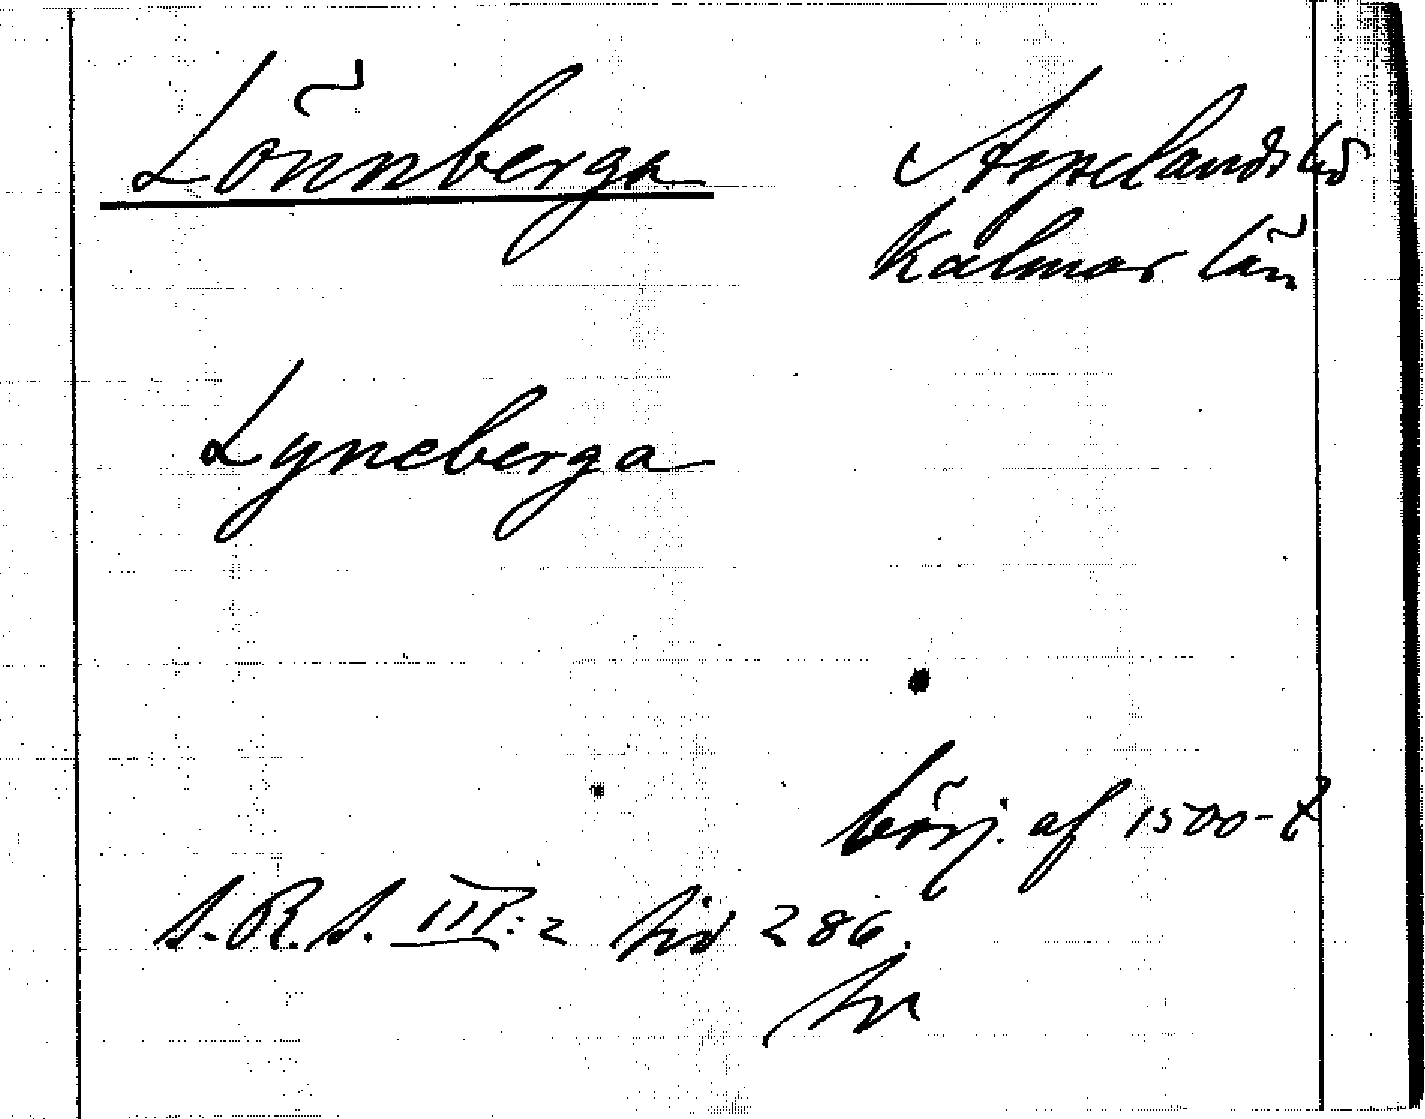 Lönnberga Aspelands hd
Kalmar län
Lyneberga
börj. af 1500-t
S.R.S. III:2 sid 286.